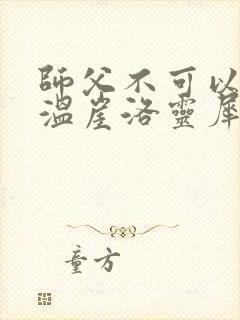 師父不可以
溫崖洛靈犀
童方